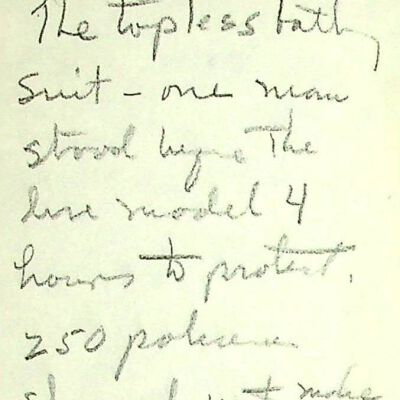 The topless bathg
suit - one man
stood before the
live model 4
hours to protest.
250 policemen
make